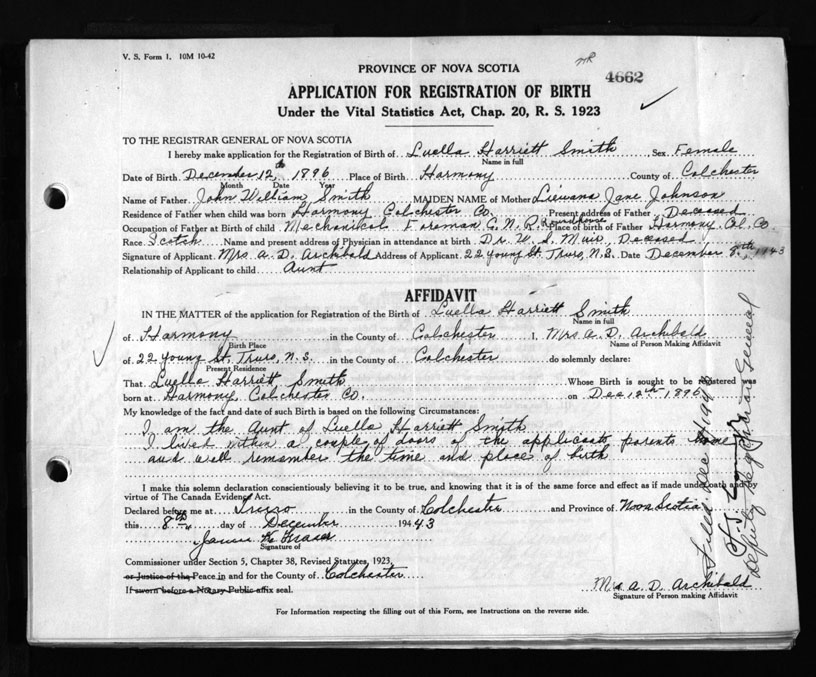 V. S. Form 1. 10M 10-42
4662
PROVINCE OF NOVA SCOTIA
APPLICATION FOR REGISTRATION OF BIRTH
Under the Vital Statistics Act, Chap. 20, R. S. 1923
TO THE REGISTRAR GENERAL OF NOVA SCOTIA
I hereby make application for the Registration of Birth of Luella Harriett Smith Sex Female
Name in full
Date of Birth December 12th 1896 Place of Birth Harmony County of Colchester
Month Date Year
Name of Father John William Smith MAIDEN NAME of Mother Jane Johnson
Residence of Father when child was born Harmony Colchester Co. Present address of Father Deceased
Occupation of Father at Birth of child Mechanical Foreman C. N. R. Roundhouse Place of birth of Father Harmony Col. Co
Race Scotch Name and present address of Physician in attendance at birth Dr. W. S. Muir, Deceased
Signature of Applicant Mrs. A. D. Archibald Address of Applicant 22 Young St. Truro, N.S. Date December 8th, 1943
Relationship of Applicant to child Aunt
AFFIDAVIT
IN THE MATTER of the application for Registration of the Birth of Luella Harriett Smith
Name in full
of Harmony in the County of Colchester I, Mrs A. D. Archibald
Birth Place Name of Person Making Affidavit
of 22 Young St, Truro, N.S. in the County of Colchester do solemnly declare:
Present Residence
That Luella Harriett Smith Whose Birth is sought to be registered was
born at Harmony, Colchester Co. on Dec 12th 1896
My knowledge of the fact and date of such Birth is based on the following Circumstances:
I am the Aunt of Luella Harriett Smith
I lived within a couple of doors of the applicants parents home
and well remember the time and place of birth
I make this solemn declaration conscientiously believing it to be true, and knowing that it is of the same force and effect as if made under oath and by
virtue of The Canada Evidence Act.
Declared before me at Truro in the County of Colchester and Province of Nova Scotia
this 8th day of December 194 43
Fraser
Signature of
Commissioner under Section 5, Chapter 38, Revised Statutes, 1923,
or Justice of the Peace in and for the County of Colchester
If sworn before a Notary Public affix seal.
Mrs A. D. Archibald
Signature of Person making Affidavit
For Information respecting the filling out of this Form, see Instructions on the reverse side.
Filed Dec
Deputy Registrar General